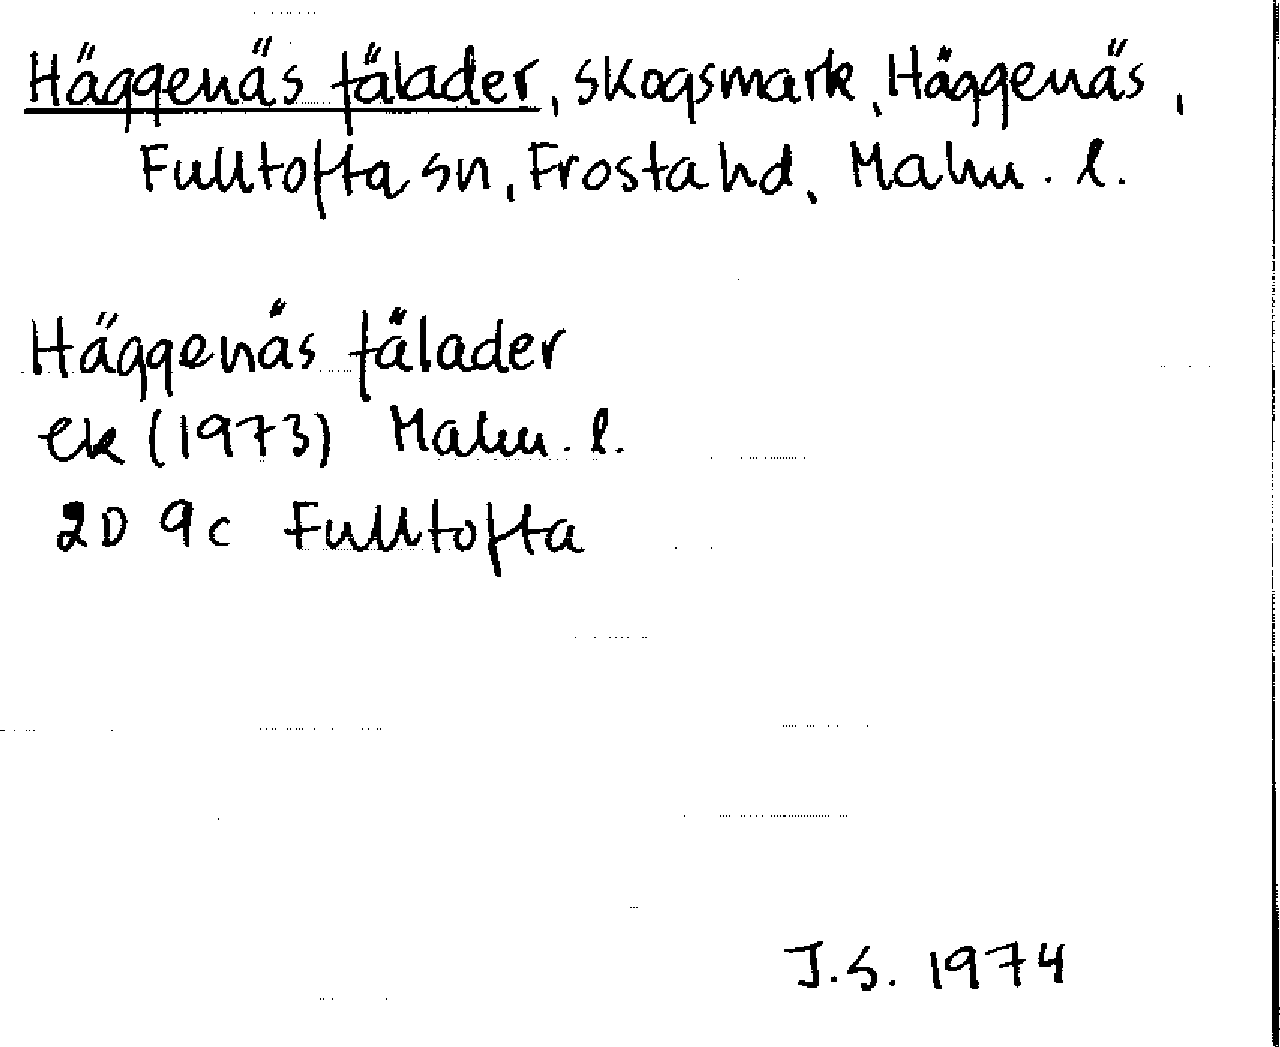 Häggenäs fälader, skogsmark, Häggenäs,
Fulltofta sn, Frosta hd, Malm. l.
Häggenäs fälader
ek (1973) Malm. l.
2D 9c Fulltofta
J.S. 1974